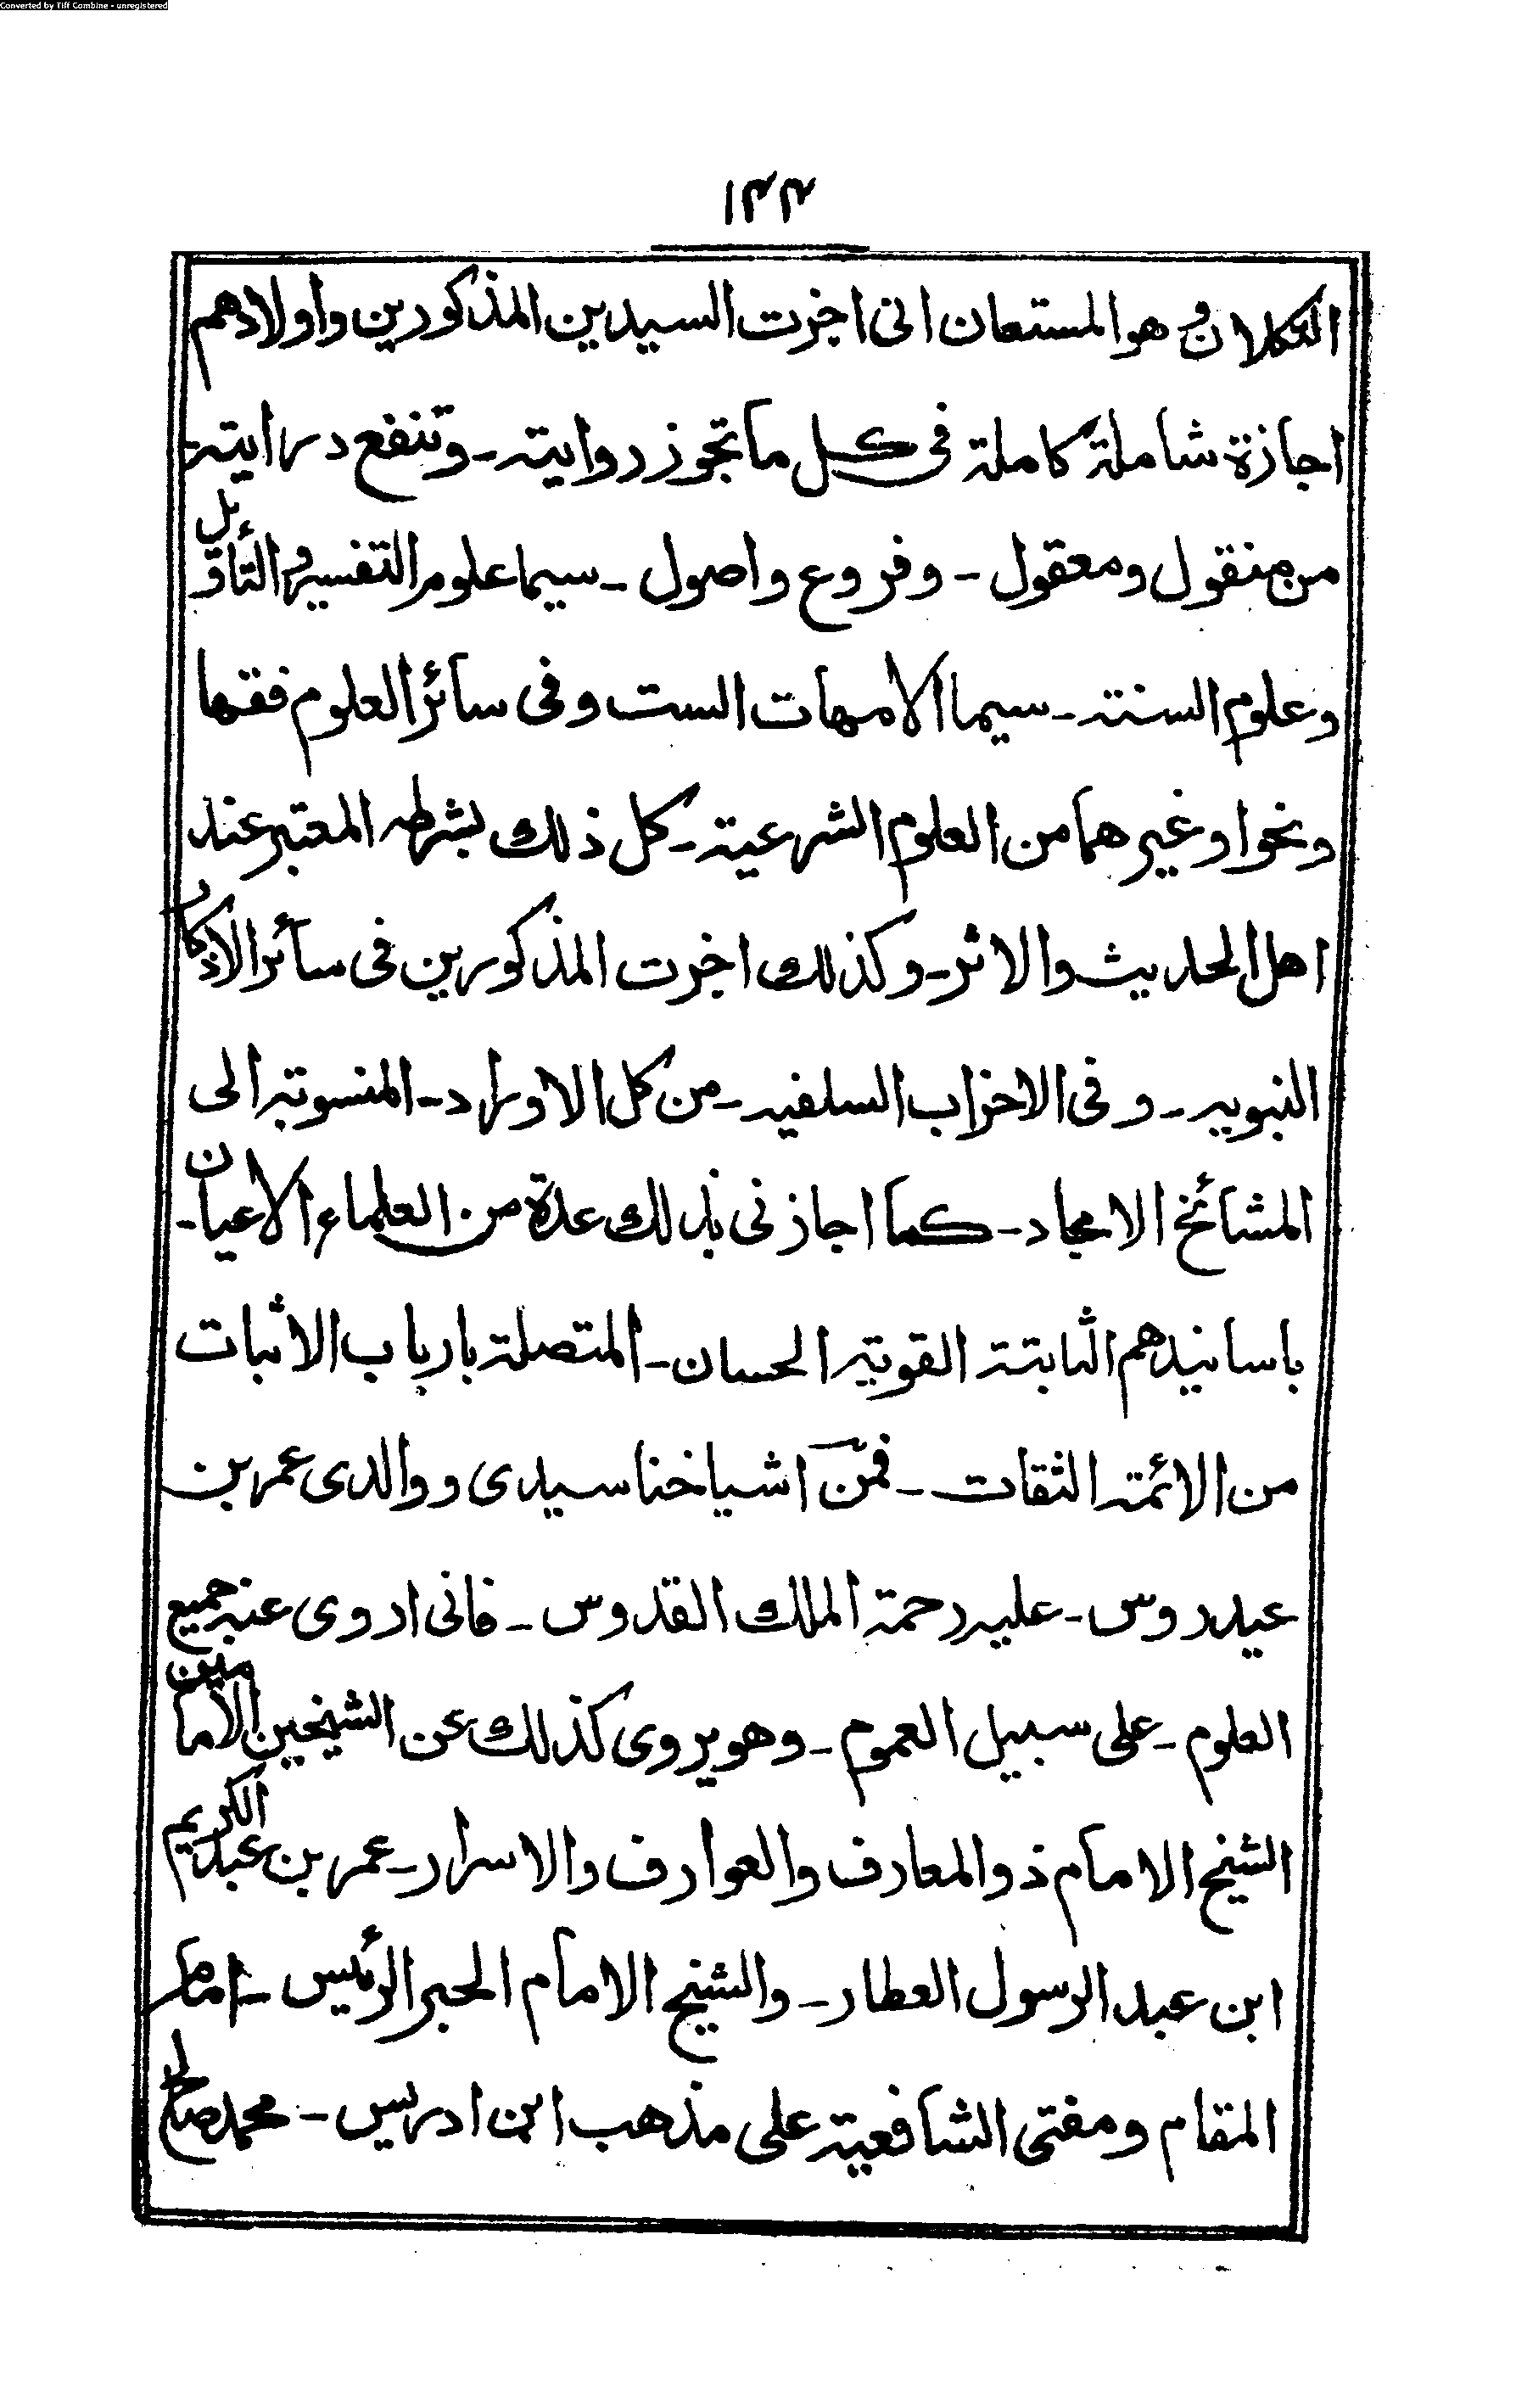 Converted by Tiff Combine - unregistered
۱۴۴
التكلان و هو المستعان انى اجزت السيدين المذكورين واولادهم
اجازة شاملة كاملة فى كل ما تجوز روايته ـ وتنفع درايته
من منقول ومعقول ـ وفروع واصول ـ سيما علوم التفسير والتأويل
وعلوم السنته ـ سيما الامهات الست وفى سائر العلوم فقها
ونحوا وغيرهما من العلوم الشرعية ـ كل ذلك بشرطه المعتبر عند
اهل الحديث والاثر ـ وكذلك اجزت المذكورين فى سائر الاذكار
النبويه ـ وفى الاحزاب السلفيه ـ من كل الاوراد ـ المنسوبة الى
المشائخ الامجاد ـ كما اجازنى بذلك عدة من العلماء الاعيان ـ
باسانيدهم الثابتة القوية الحسان ـ المتصلة بارباب الاثبات
من الائمة الثقات ـ فمن اشياخنا سيدى ووالدى عمر بن
عيدروس ـ عليه رحمة الملك القدوس ـ فانى اروى عنه جميع
العلوم ـ على سبيل العموم ـ وهو يروى كذلك عن الشيخين الامامين
الشيخ الامام ذو المعارف والعوارف والاسرار ـ عمر بن عبد الكريم
ابن عبد الرسول العطار ـ والشيخ الامام الحبر الرئيس ـ امام
المقام ومفتى الشافعية على مذهب ابن ادريس ـ محمد صالح